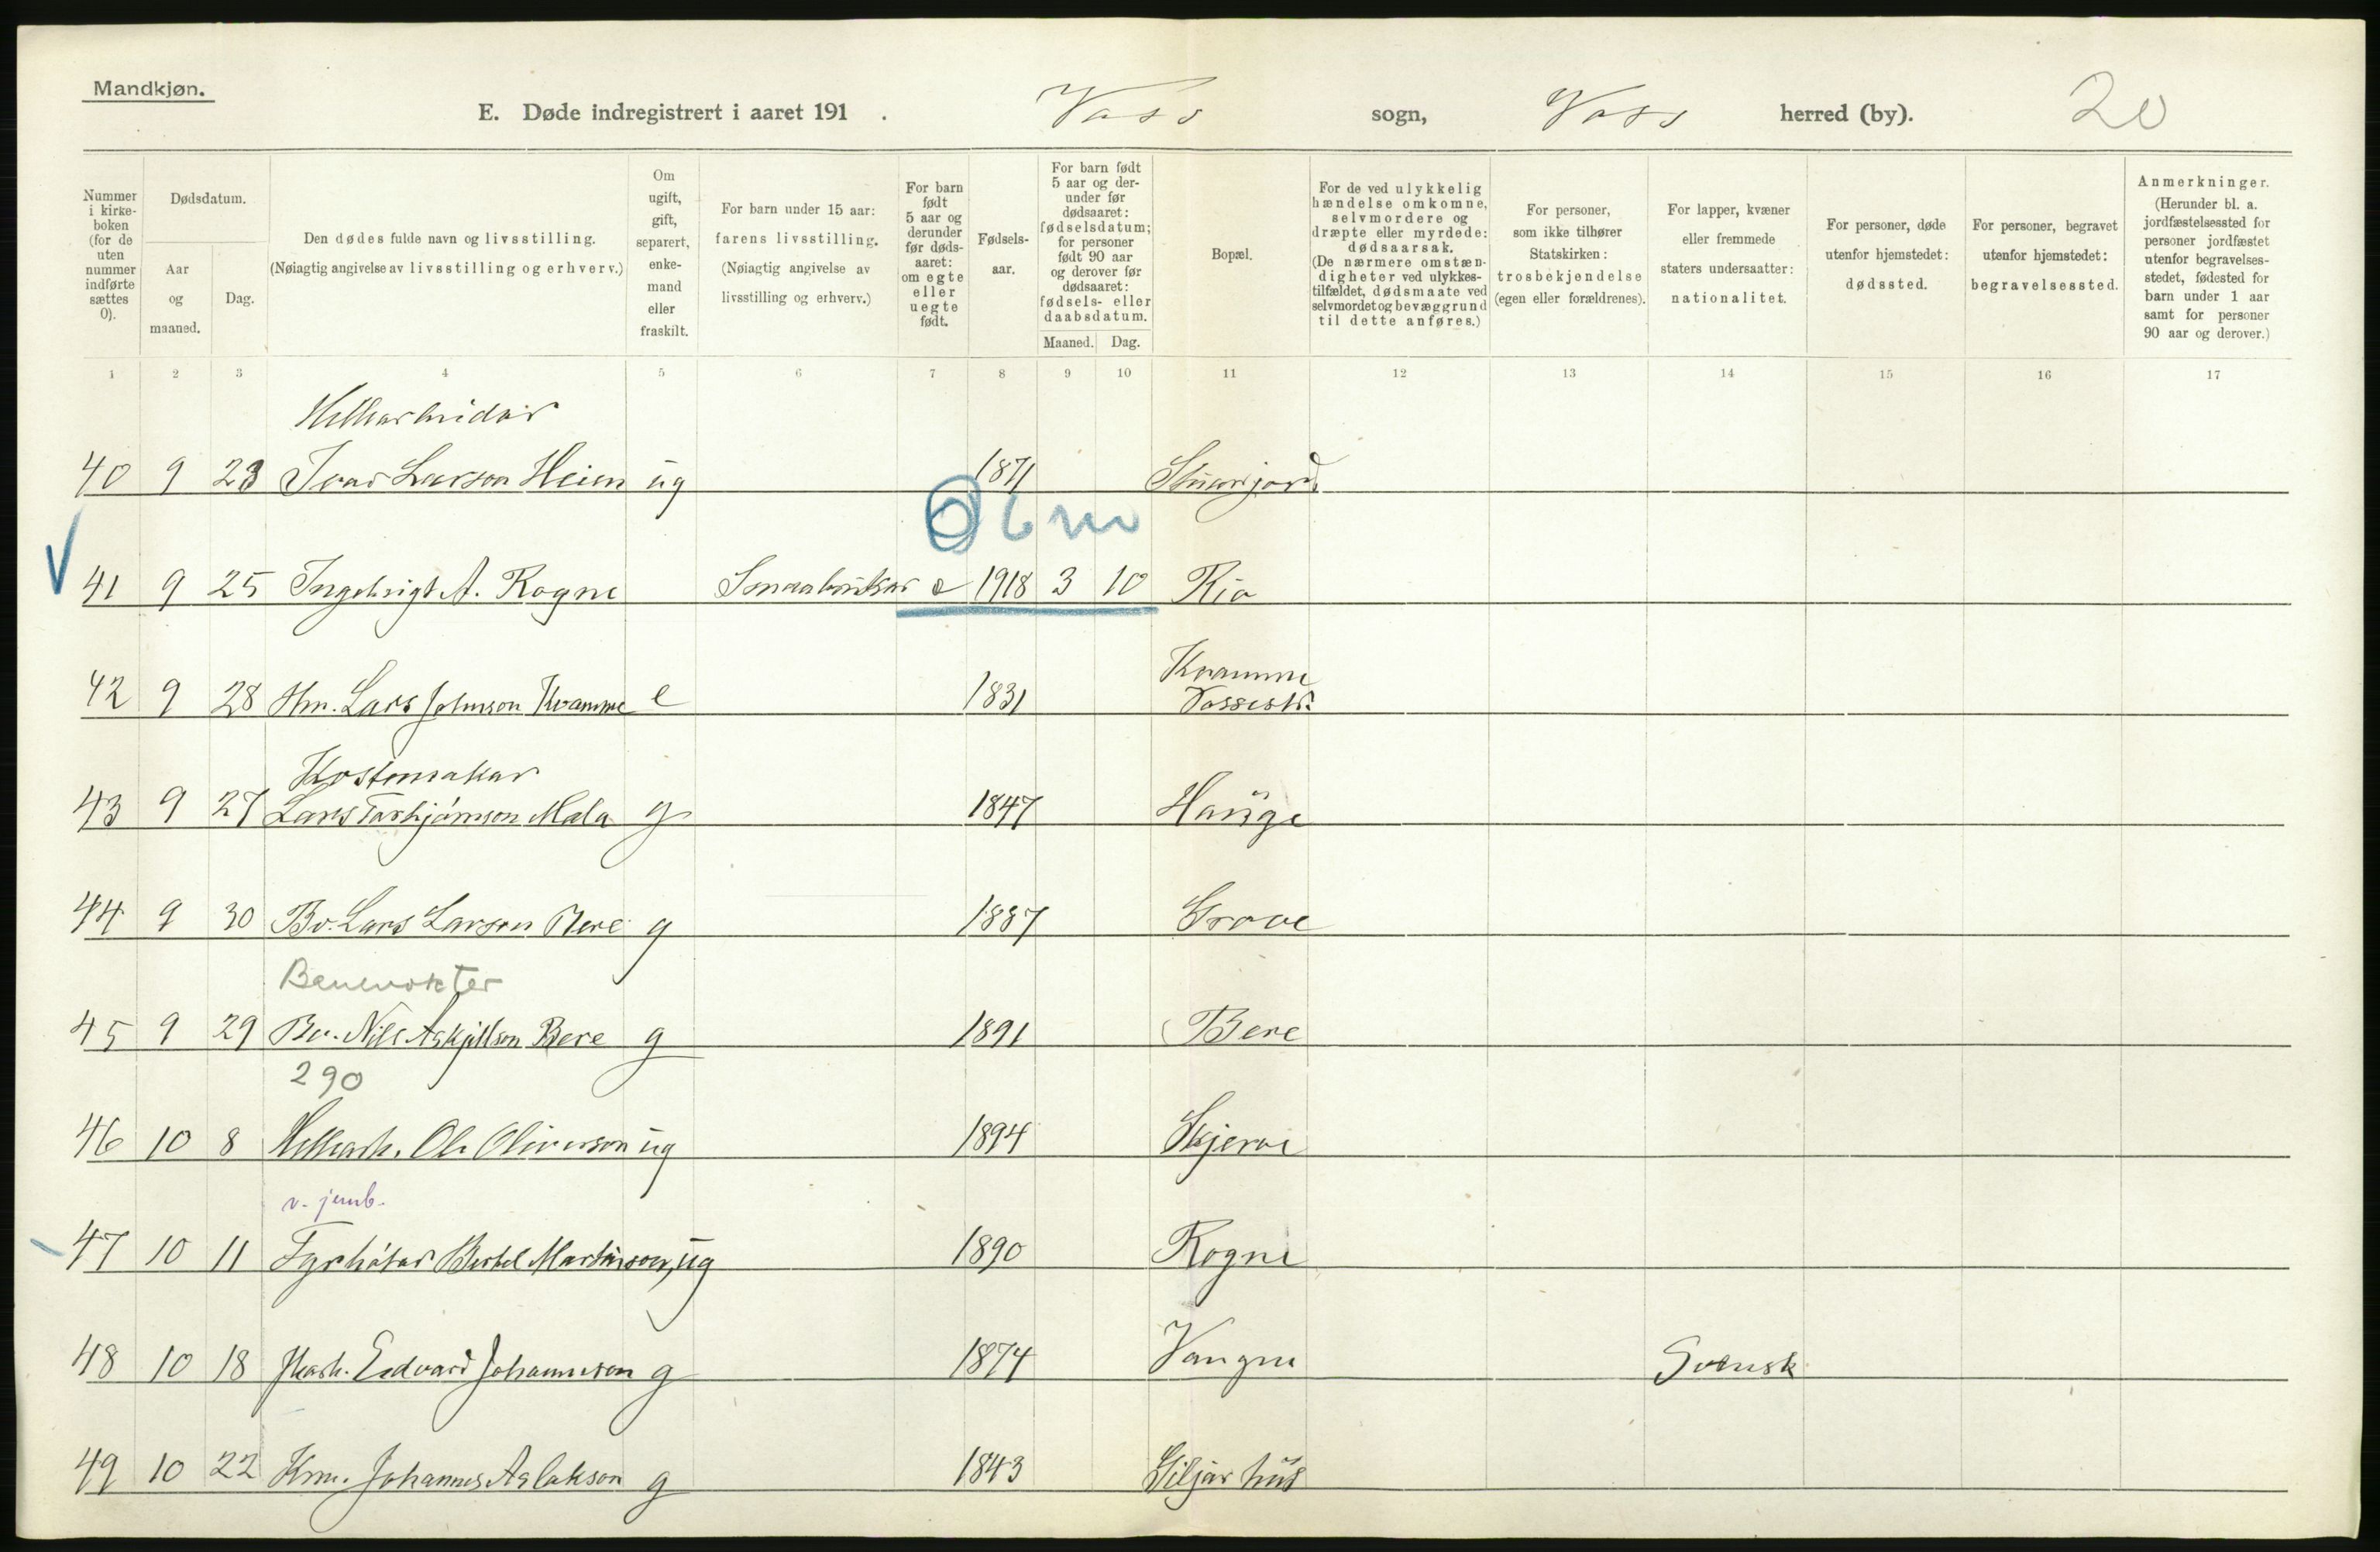 Mandkjøn.
E. Døde indregistrert i aaret 191 . Voss sogn, Voss herred (by). 20
Nummer i kirkeboken (for de uten nummer indførte sættes 0).
Dødsdatum.
Aar og maaned.
Dag.
Den dødes fulde navn og livsstilling.
(Nøiagtig angivelse av livsstilling og erhverv.)
Om ugift, gift, separert, enkemand eller fraskilt.
For barn under 15 aar: farens livsstilling. (Nøiagtig angivelse av livsstilling og erhverv.)
For barn født 5 aar og derunder før dødsaaret: om egte eller uegte født.
Fødselsaar.
For barn født 5 aar og derunder før dødsaaret: fødselsdatum; for personer født 90 aar og derover før dødsaaret: fødsels- eller daabsdatum.
Maaned. Dag.
Bopæl.
For de ved ulykkelig hændelse omkomne, selvmordere og dræpte eller myrdede: dødsaarsak. (De nærmere omstændigheter ved ulykkestilfældet, dødsmaate ved selvmordet og bevæggrund til dette anføres.)
For personer, som ikke tilhører Statskirken: trosbekjendelse (egen eller forældrenes).
For lapper, kvæner eller fremmede staters undersaatter: nationalitet.
For personer, døde utenfor hjemstedet: dødssted.
For personer, begravet utenfor hjemstedet: begravelsessted.
Anmerkninger. (Herunder bl. a. jordfæstelsessted for personer jordfæstet utenfor begravelsesstedet, fødested for barn under 1 aar samt for personer 90 aar og derover.)
1 2 3 4 5 6 7 8 9 10 11 12 13 14 15 16 17
40 9 23 Ivar Larson Heien ug 1871
0 6 m
41 9 25 Ingebrigt A. Rogne Smaabrukar e 1918 3 10 Rio
Kvamme
42 9 28 Hm. Lars Johnson Kvamme e 1831 Vossestr.
Kostemakar
43 9 27 Lars Torbjörnson Mala g 1847 Hauge
44 9 30 Br. Lars Larson Bere g 1887 Grove
Banevokter
45 9 29 Bv. Nils Askjellson Bere g 1891 Bere
290
46 10 8 Ole Oliverson ug 1894 Skjerve
v. jernb.
47 10 11 Fyrbötar Bertel Martinson, ug 1890 Rogne
48 10 18 Edvard Johanneson g 1874 Vangen Svensk
49 10 22 Krm. Johannes Aslakson g 1843 Giljarhus